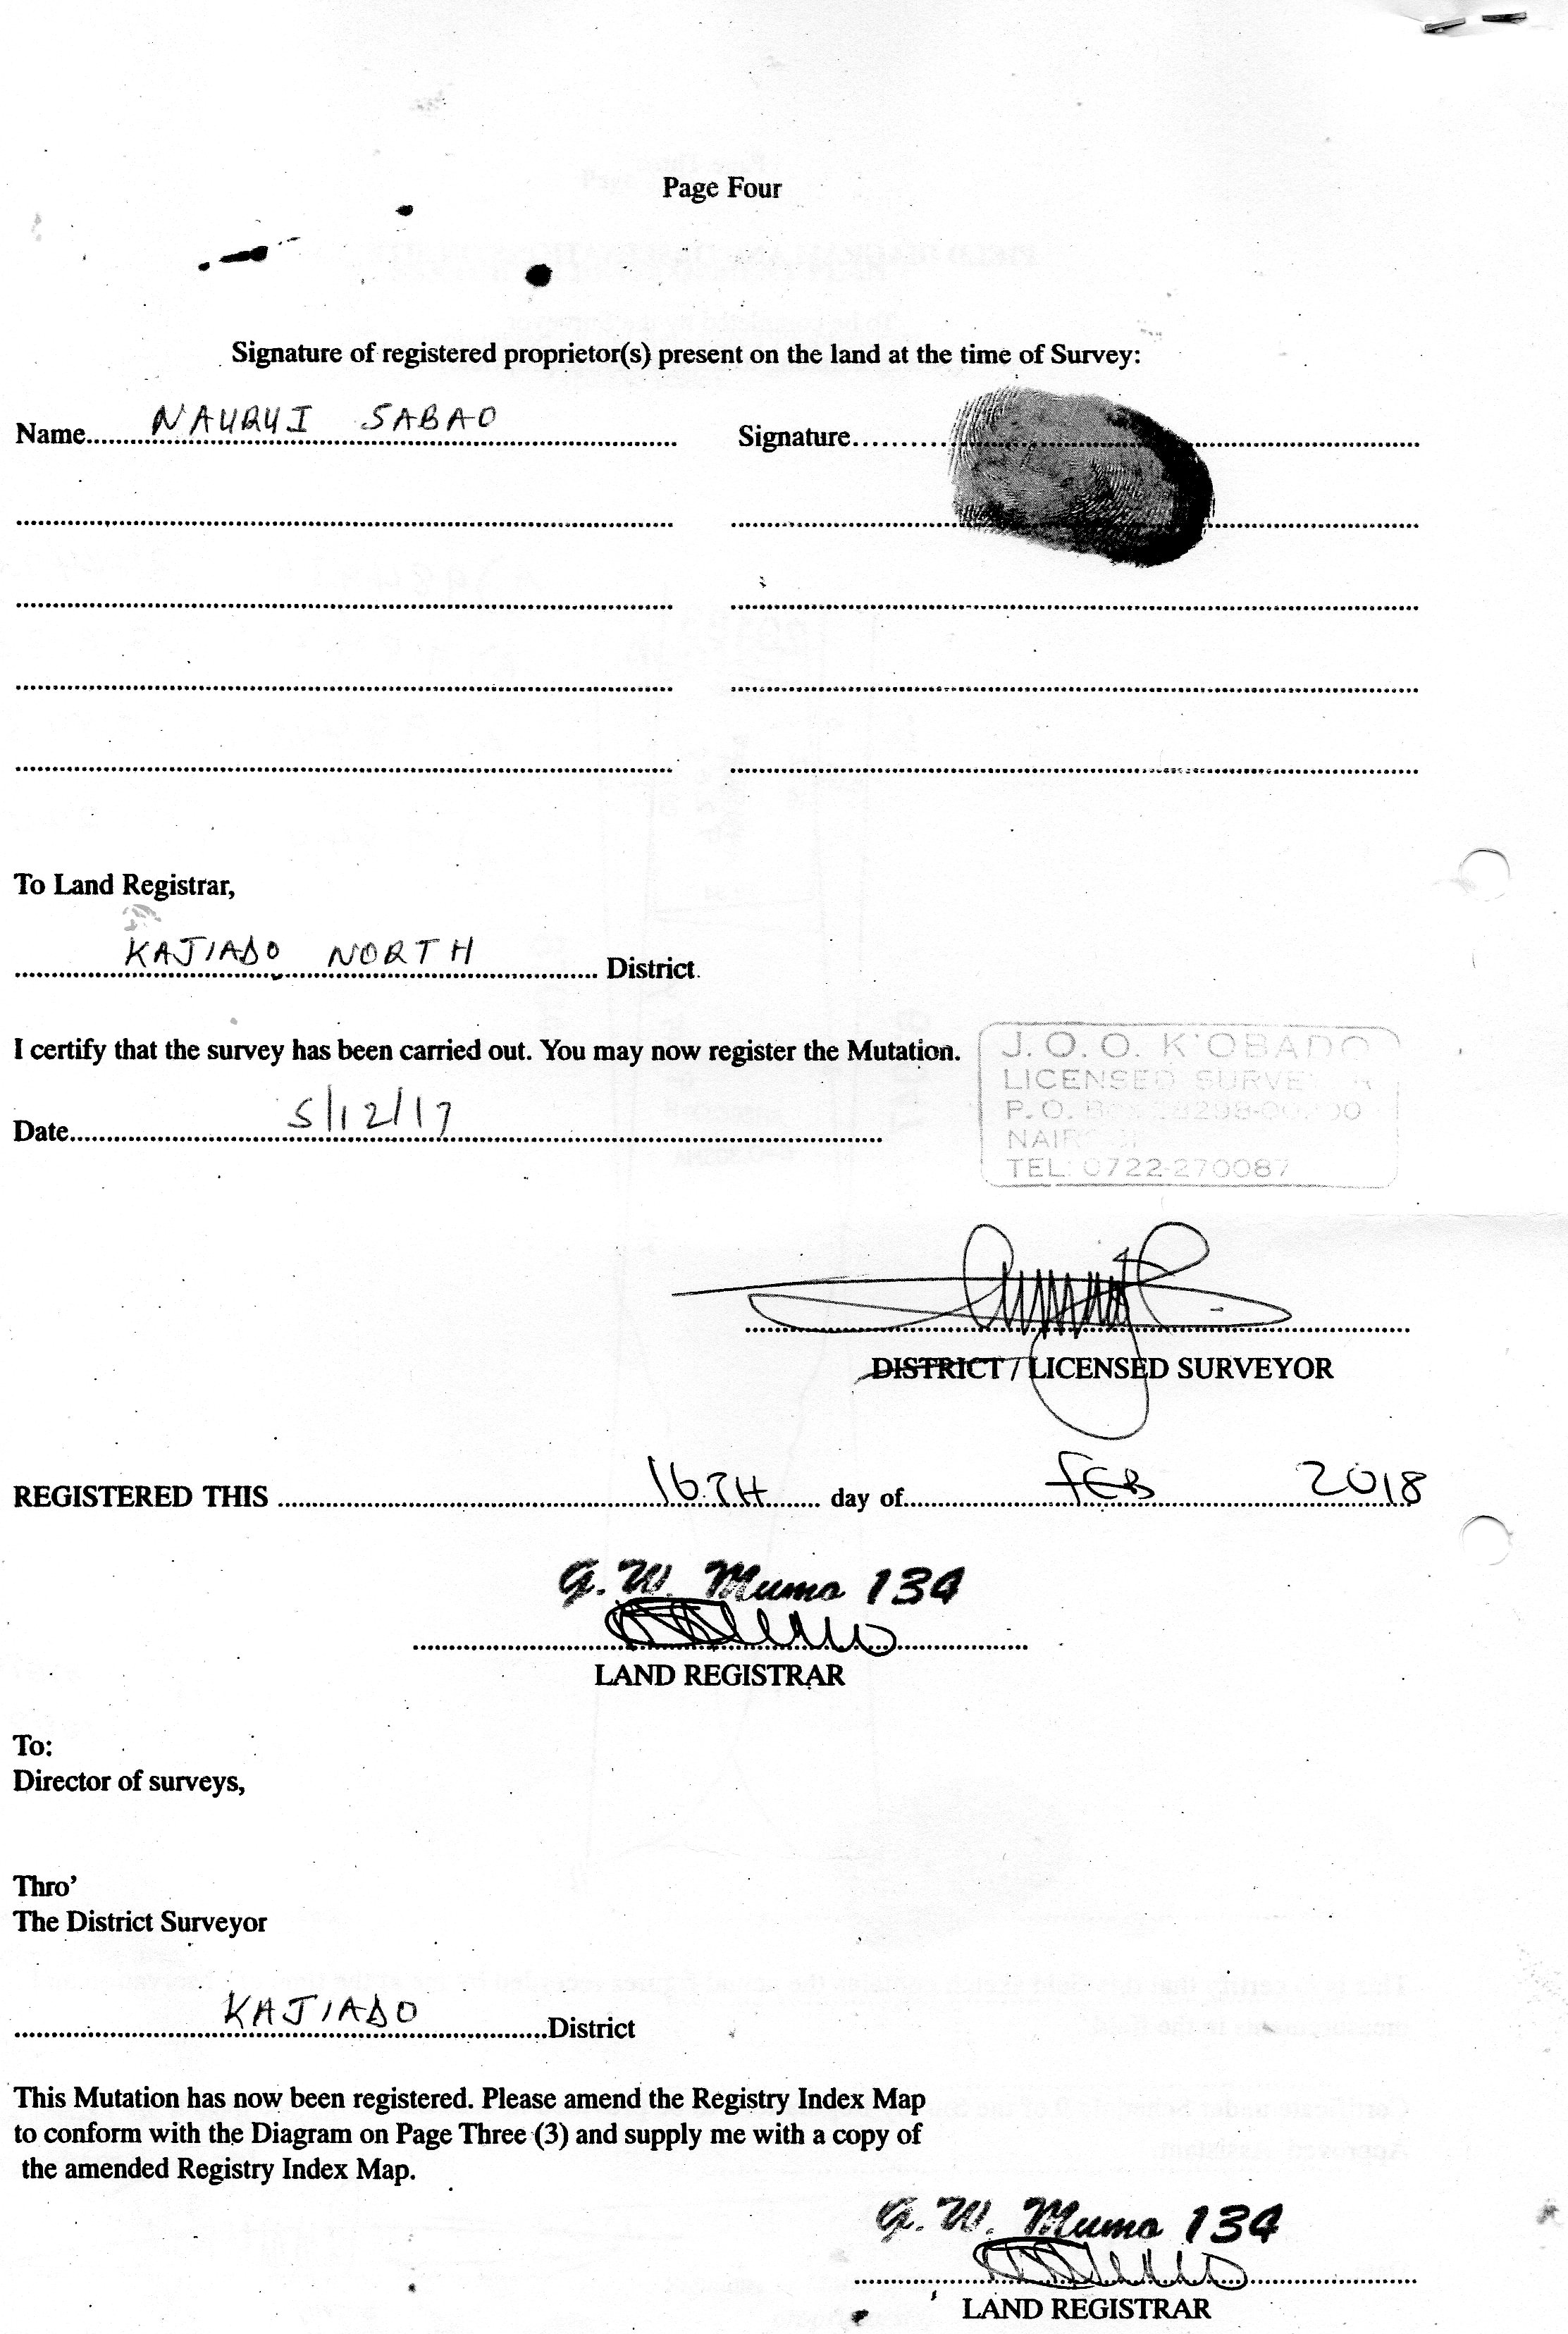 Page Four
Signature of registered proprietor(s) present on the land at the time of Survey:
Name NAURUI SABAO Signature
To Land Registrar,
KAJIADO NORTH District
I certify that the survey has been carried out. You may now register the Mutation.
J. O. O. K'OBADO
LICENSED
P. O.
TEL: 0722-270087
Date 5/12/17
DISTRICT / LICENSED SURVEYOR
REGISTERED THIS 16TH day of FEB 2018
G. W. Mumo 134
LAND REGISTRAR
To:
Director of surveys,
Thro'
The District Surveyor
KAJIADO District
This Mutation has now been registered. Please amend the Registry Index Map
to conform with the Diagram on Page Three (3) and supply me with a copy of
the amended Registry Index Map.
G. W. Mumo 134
LAND REGISTRAR